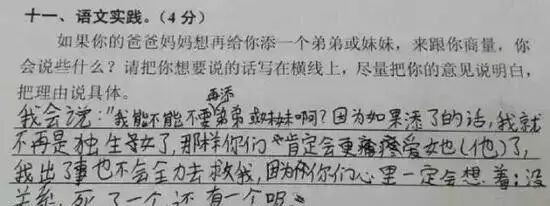 十一、语文实践。（4分）
如果你的爸爸妈妈想再给你添一个弟弟或妹妹，来跟你商量，你
会说些什么？请把你想要说的话写在横线上，尽量把你的意见说明白，
把理由说具体。
再添
我会说："我能不能不要弟弟或妹妹啊？因为如果添了的话，我就
不再是独生子女了，那样你们肯定会更疼爱她（他）了，
我出了事也不会全力去救我，因为你们心里一定会想着：没
关系，死了一个还有一个呢。